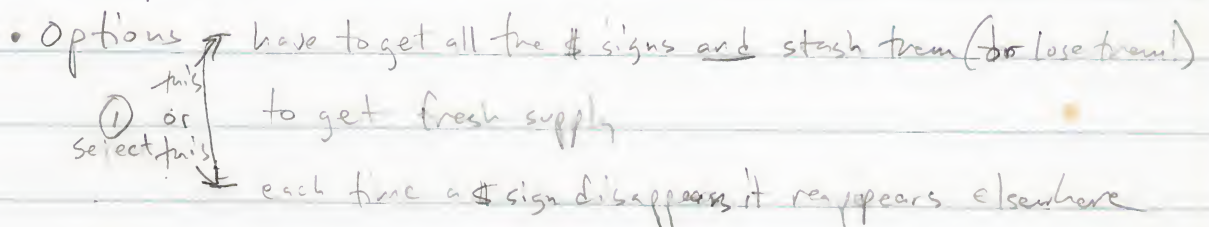 • Options have to get all the $ signs and stash them (or lose them!)
this
① or to get fresh supply
select this
each time a $ sign disappears it reappears elsewhere